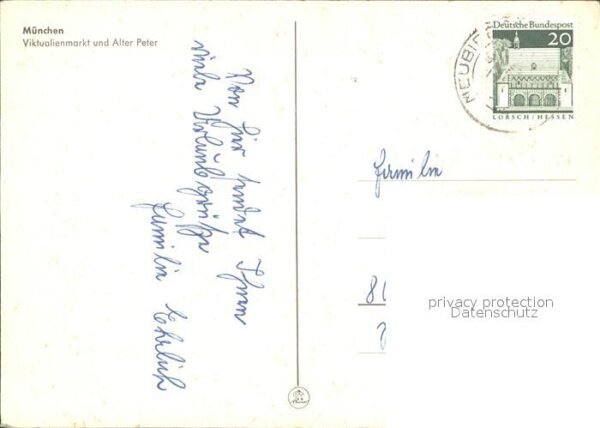 München
Viktualienmarkt und Alter Peter
Von hier sendet Ihnen
viele Urlaubsgrüße
Familie Ehrlich
NEUBI
Deutsche Bundespost
20
LORSCH/HESSEN
Familie
8
privacy protection
Datenschutz